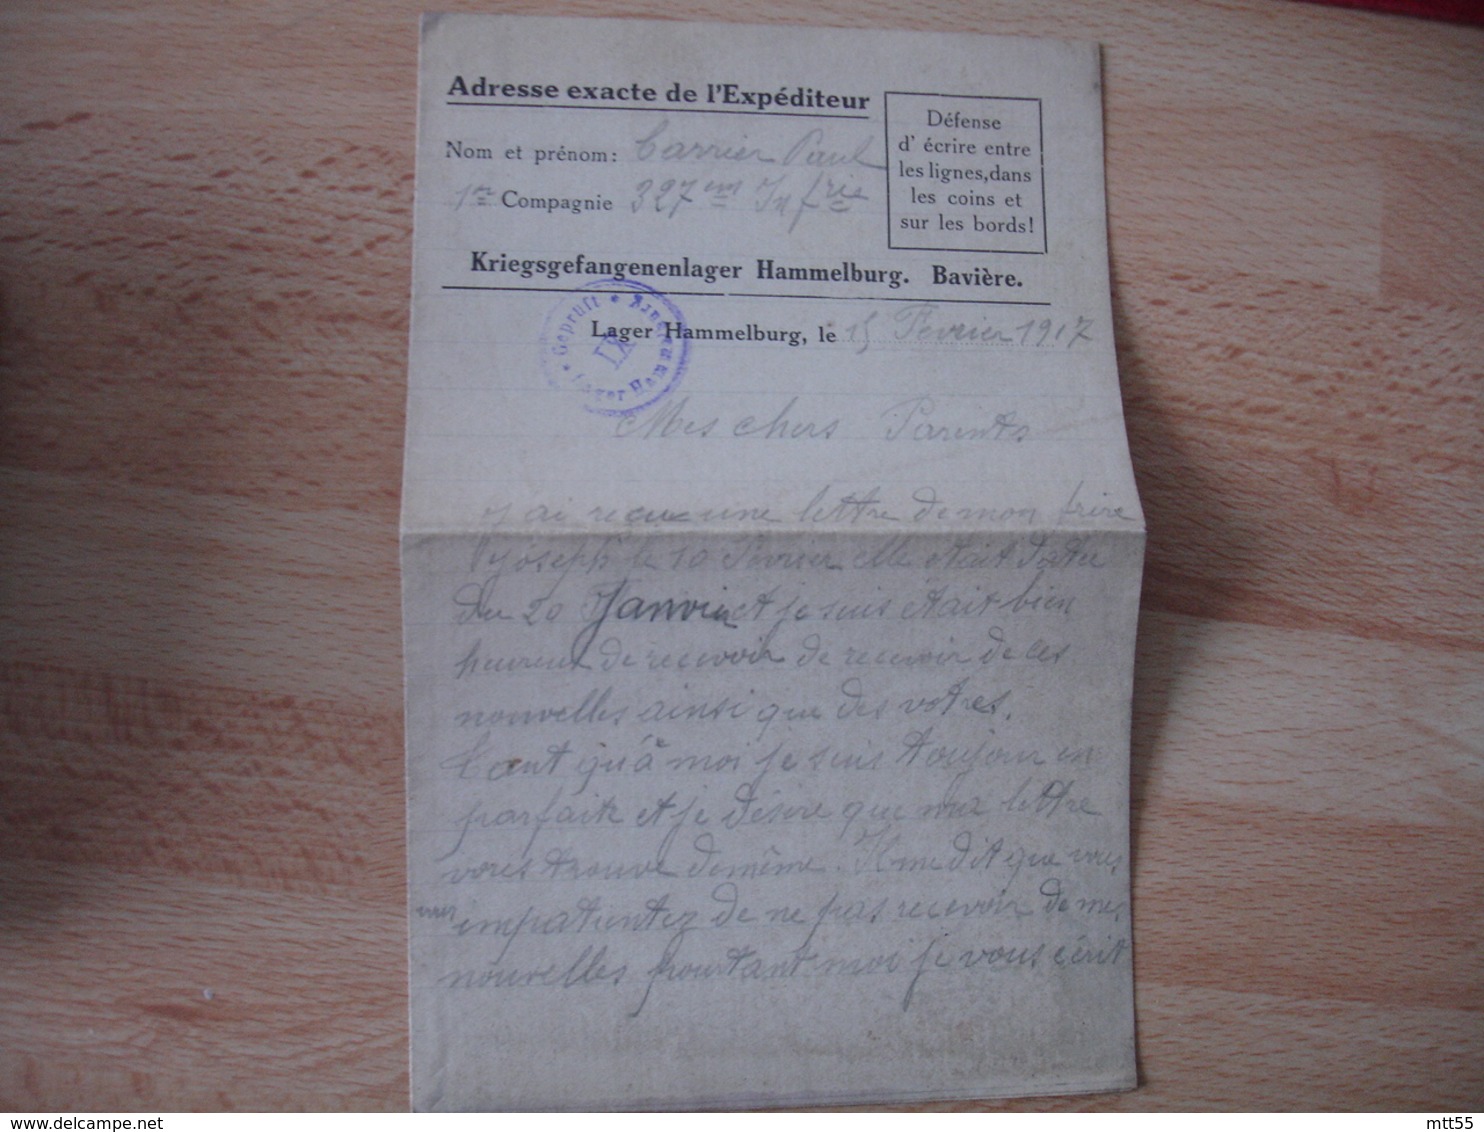 Adresse exacte de l'Expéditeur
Nom et prénom: Carrier Paul
1re Compagnie 327em Infrie
Défense
d' écrire entre
les lignes, dans
les coins et
sur les bords!
Kriegsgefangenenlager Hammelburg. Bavière.
Geprüft
IX
Lager Hammelburg, le 15 Fevrier 1917
Mes chers Parents
J'ai reçue une lettre de mon frère
joseph le 10 Fevrier elle etait datée
du 20 Janvier et je suis était bien
heureux de recevoir de recevoir de ces
nouvelles ainsi que des votres.
Tant qu'à moi je suis toujour en
parfaite et je désire que ma lettre
vous trouve de même. Il me dit que vous
vous impatientez de ne pas recevoir de mes
nouvelles pourtant moi je vous écrit
mtt55